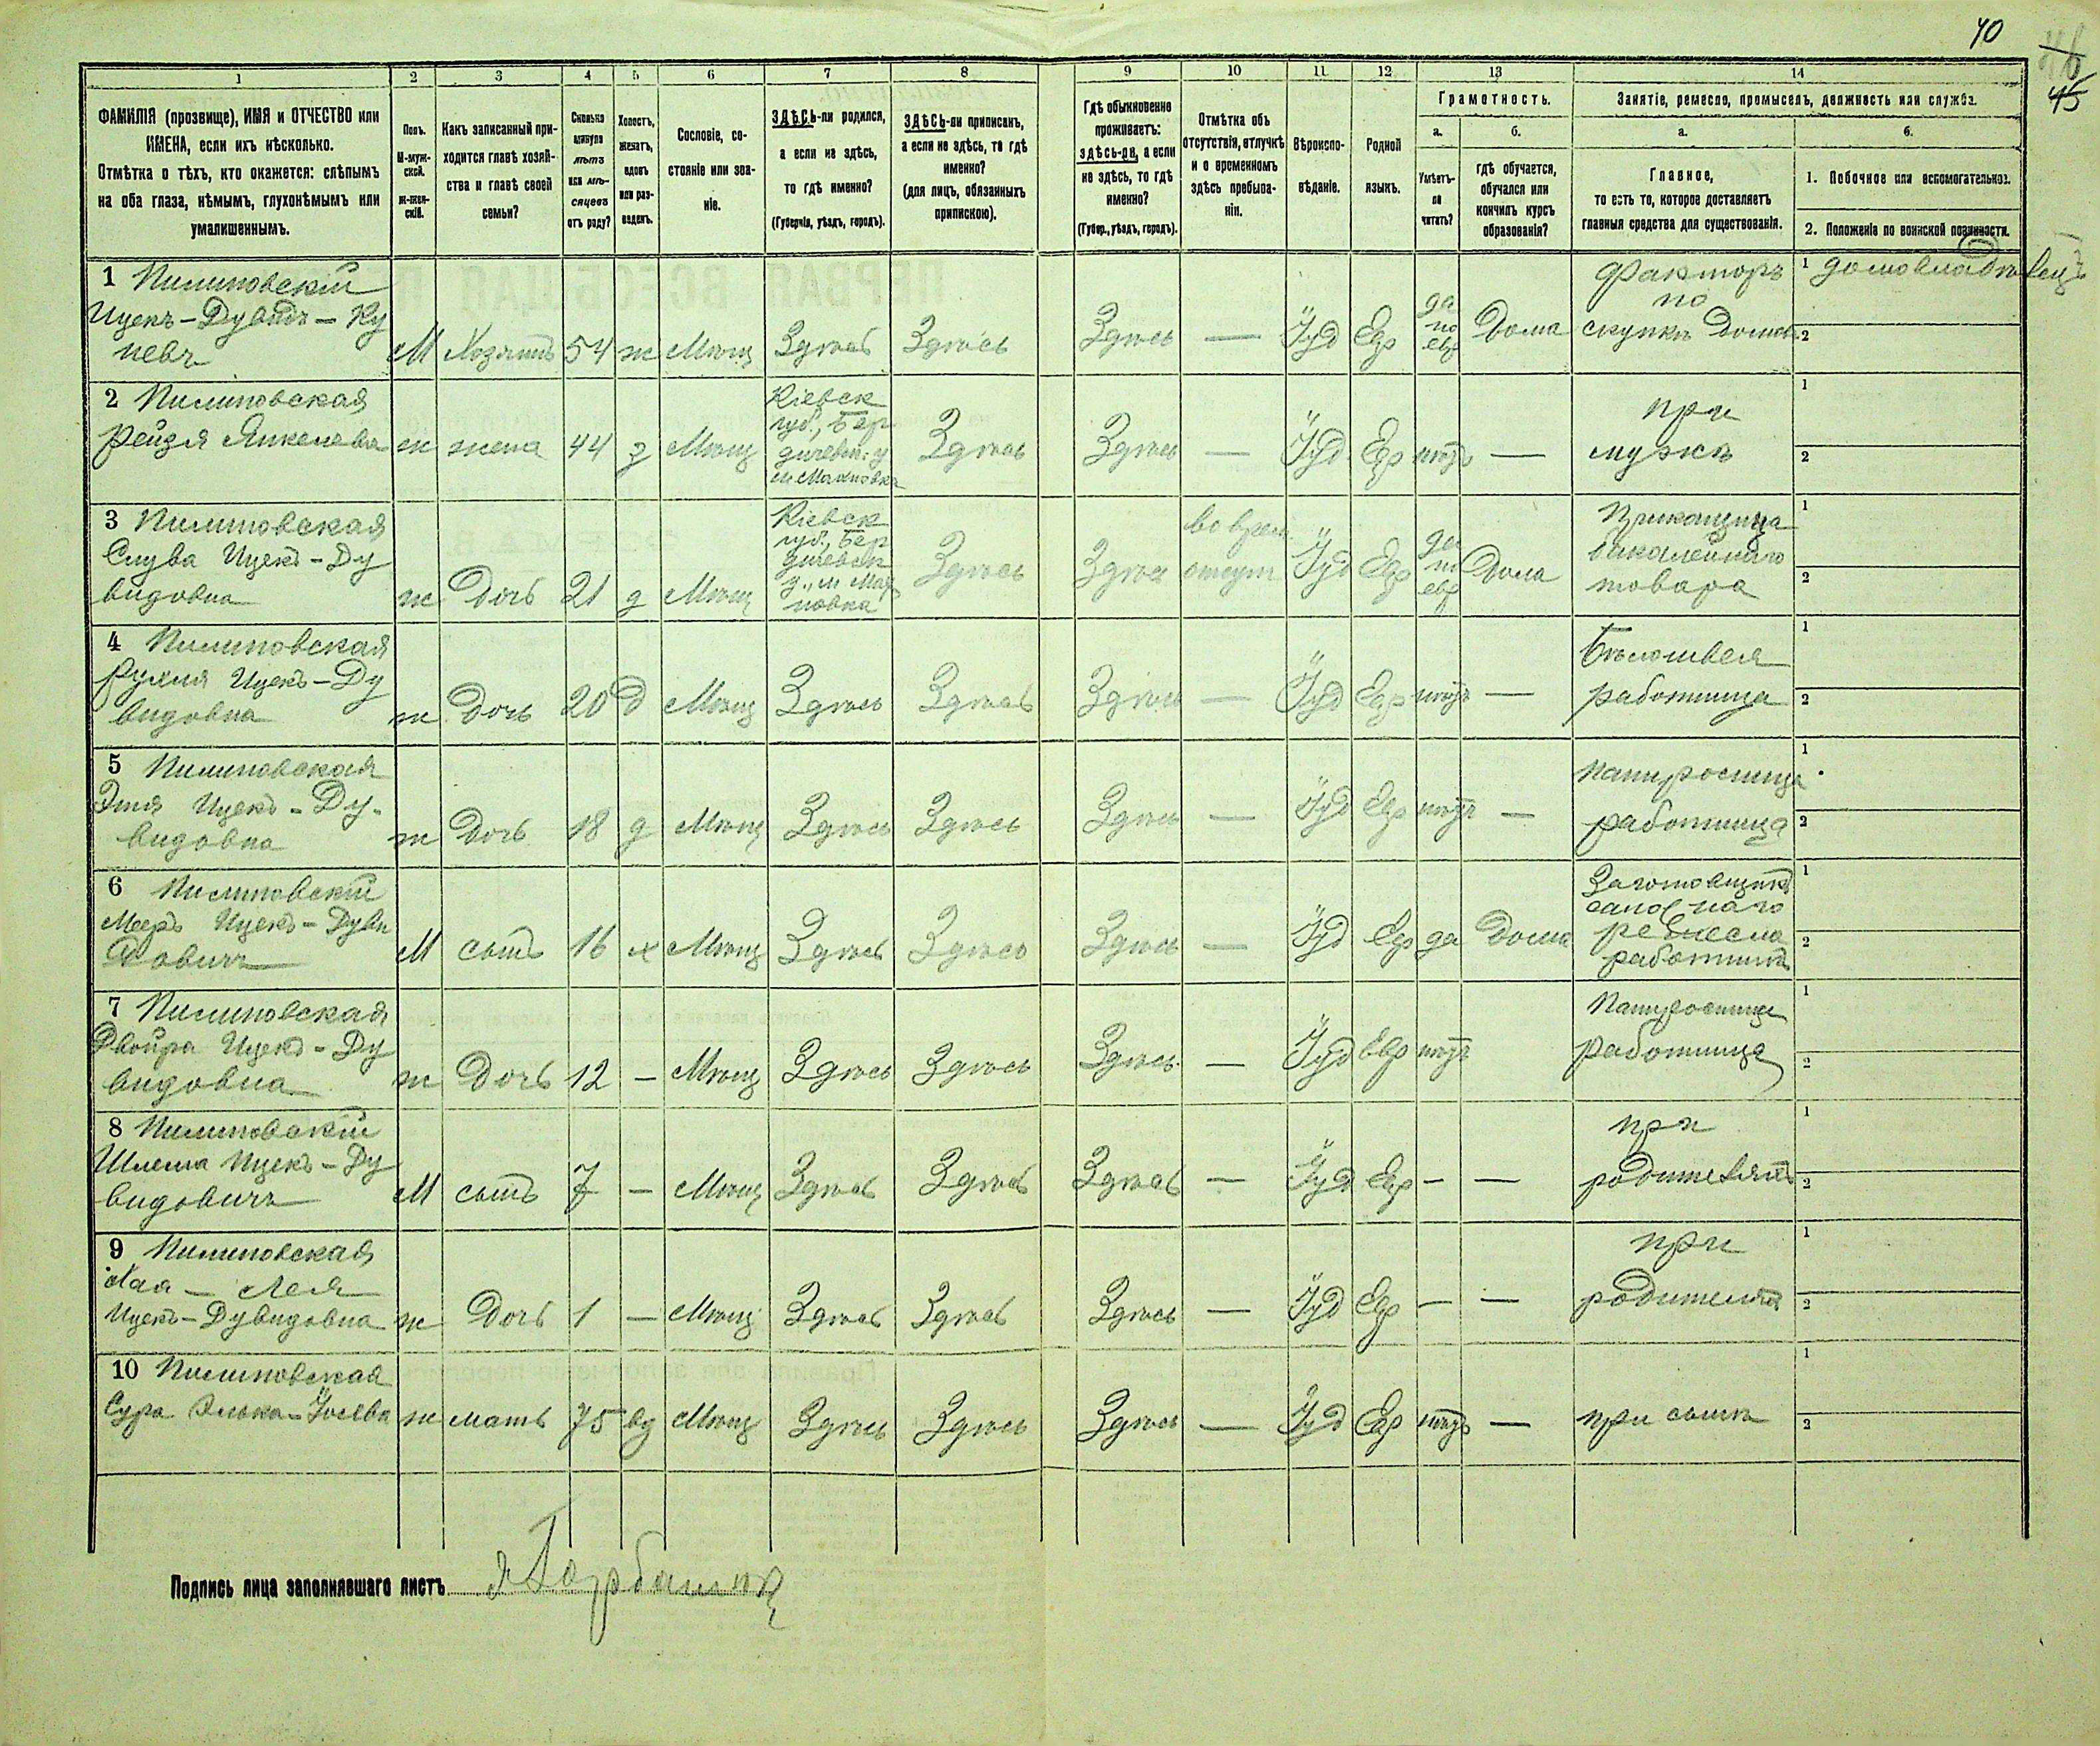 40
45
1 2 3 4 5 6 7 8 9 10 11 12 13 14
ФАМИЛІЯ (прозвище), ИМЯ и ОТЧЕСТВО или
ИМЕНА, если ихъ нѣсколько.
Отмѣтка о тѣхъ, кто окажется: слѣпымъ
на оба глаза, нѣмымъ, глухонѣмымъ или
умалишеннымъ.
Полъ.
М-муж-
ской.
ж-жен-
скій.
Какъ записанный при-
ходится главѣ хозяй-
ства и главѣ своей
семьи?
Сколько
минуло
лѣтъ
или мѣ-
сяцевъ
отъ роду?
Холостъ,
женатъ,
вдовъ
или раз-
веденъ.
Сословіе, со-
стояніе или зва-
ніе.
ЗДѢСЬ-ли родился,
а если не здѣсь,
то гдѣ именно?
(Губернія, уѣздъ, городъ).
ЗДѢСЬ-ли приписанъ,
а если не здѣсь, то гдѣ
именно?
(для лицъ, обязанныхъ
припискою).
Гдѣ обыкновенно
проживаетъ:
здѣсь-ли, а если
не здѣсь, то гдѣ
именно?
(Губер., уѣздъ, городъ).
Отмѣтка объ
отсутствіи, отлучкѣ
и о временномъ
здѣсь пребыва-
ніи.
Вѣроиспо-
вѣданіе.
Родной
языкъ.
Грамотность.
а. б.
Умѣетъ-
ли
читать?
гдѣ обучается,
обучался или
кончилъ курсъ
образованія?
Занятіе, ремесло, промыселъ, должность или служба.
а. б.
Главное,
то есть то, которое доставляетъ
главныя средства для существованія.
1. Побочное или вспомогательное.
2. Положеніе по воинской повинности.
1 Пилиповскій
Ицекъ-Дувидъ-Ку
невъ М Хозяинъ 54 ж Мѣщ Здѣсь Здѣсь Здѣсь — Іуд Евр да по евр Дома
факторъ
по
скупкѣ Домовъ
1 домовладѣлецъ
2
2 Пилиповская
Рейзя Янкелевна ж жена 44 з Мѣщ
Кіевск
губ., Бер
дичевск. у
м Махновка
Здѣсь Здѣсь — Іуд Евр нѣтъ —
при
мужѣ
1
2
3 Пилиповская
Слува Ицекъ-Ду
видовна ж Дочь 21 д Мѣщ
Кіевск
губ., Бер
дичевск
у., м Мах
новка
Здѣсь Здѣсь
во врем
отсут
Іуд Евр да по евр Дома
Прикащица
бакалейнаго
товара
1
2
4 Пилиповская
Рухля Ицекъ-Ду
видовна ж Дочь 20 д Мѣщ Здѣсь Здѣсь Здѣсь — Іуд Евр нѣтъ —
Бѣлошвея
работница
1
2
5 Пилиповская
Этя Ицекъ-Ду-
видовна ж Дочь 18 д Мѣщ Здѣсь Здѣсь Здѣсь — Іуд Евр нѣтъ —
Папиросница
работница
1
2
6 Пилиповскій
Мееръ Ицекъ-Дуви
довичъ М сынъ 16 х Мѣщ Здѣсь Здѣсь Здѣсь — Іуд Евр да Дома
Заготовщикъ
сапожнаго
ремесла
работникъ
1
2
7 Пилиповская
Двойра Ицекъ-Ду
видовна ж Дочь 12 — Мѣщ Здѣсь Здѣсь Здѣсь — Іуд Евр нѣтъ
Папиросница
работница
1
2
8 Пилиповскій
Шлема Ицекъ-Ду
видовичъ М сынъ 7 — Мѣщ Здѣсь Здѣсь Здѣсь — Іуд Евр — —
при
родителяхъ
1
2
9 Пилиповская
Хая — Лея
Ицекъ-Дувидовна ж Дочь 1 — Мѣщ Здѣсь Здѣсь Здѣсь — Іуд Евр — —
при
родителяхъ
1
2
10 Пилиповская
Сура Элька-Іосевна ж мать 75 вд Мѣщ Здѣсь Здѣсь Здѣсь — Іуд Евр нѣтъ — при сынѣ
1
2
Подпись лица заполнявшаго листъ